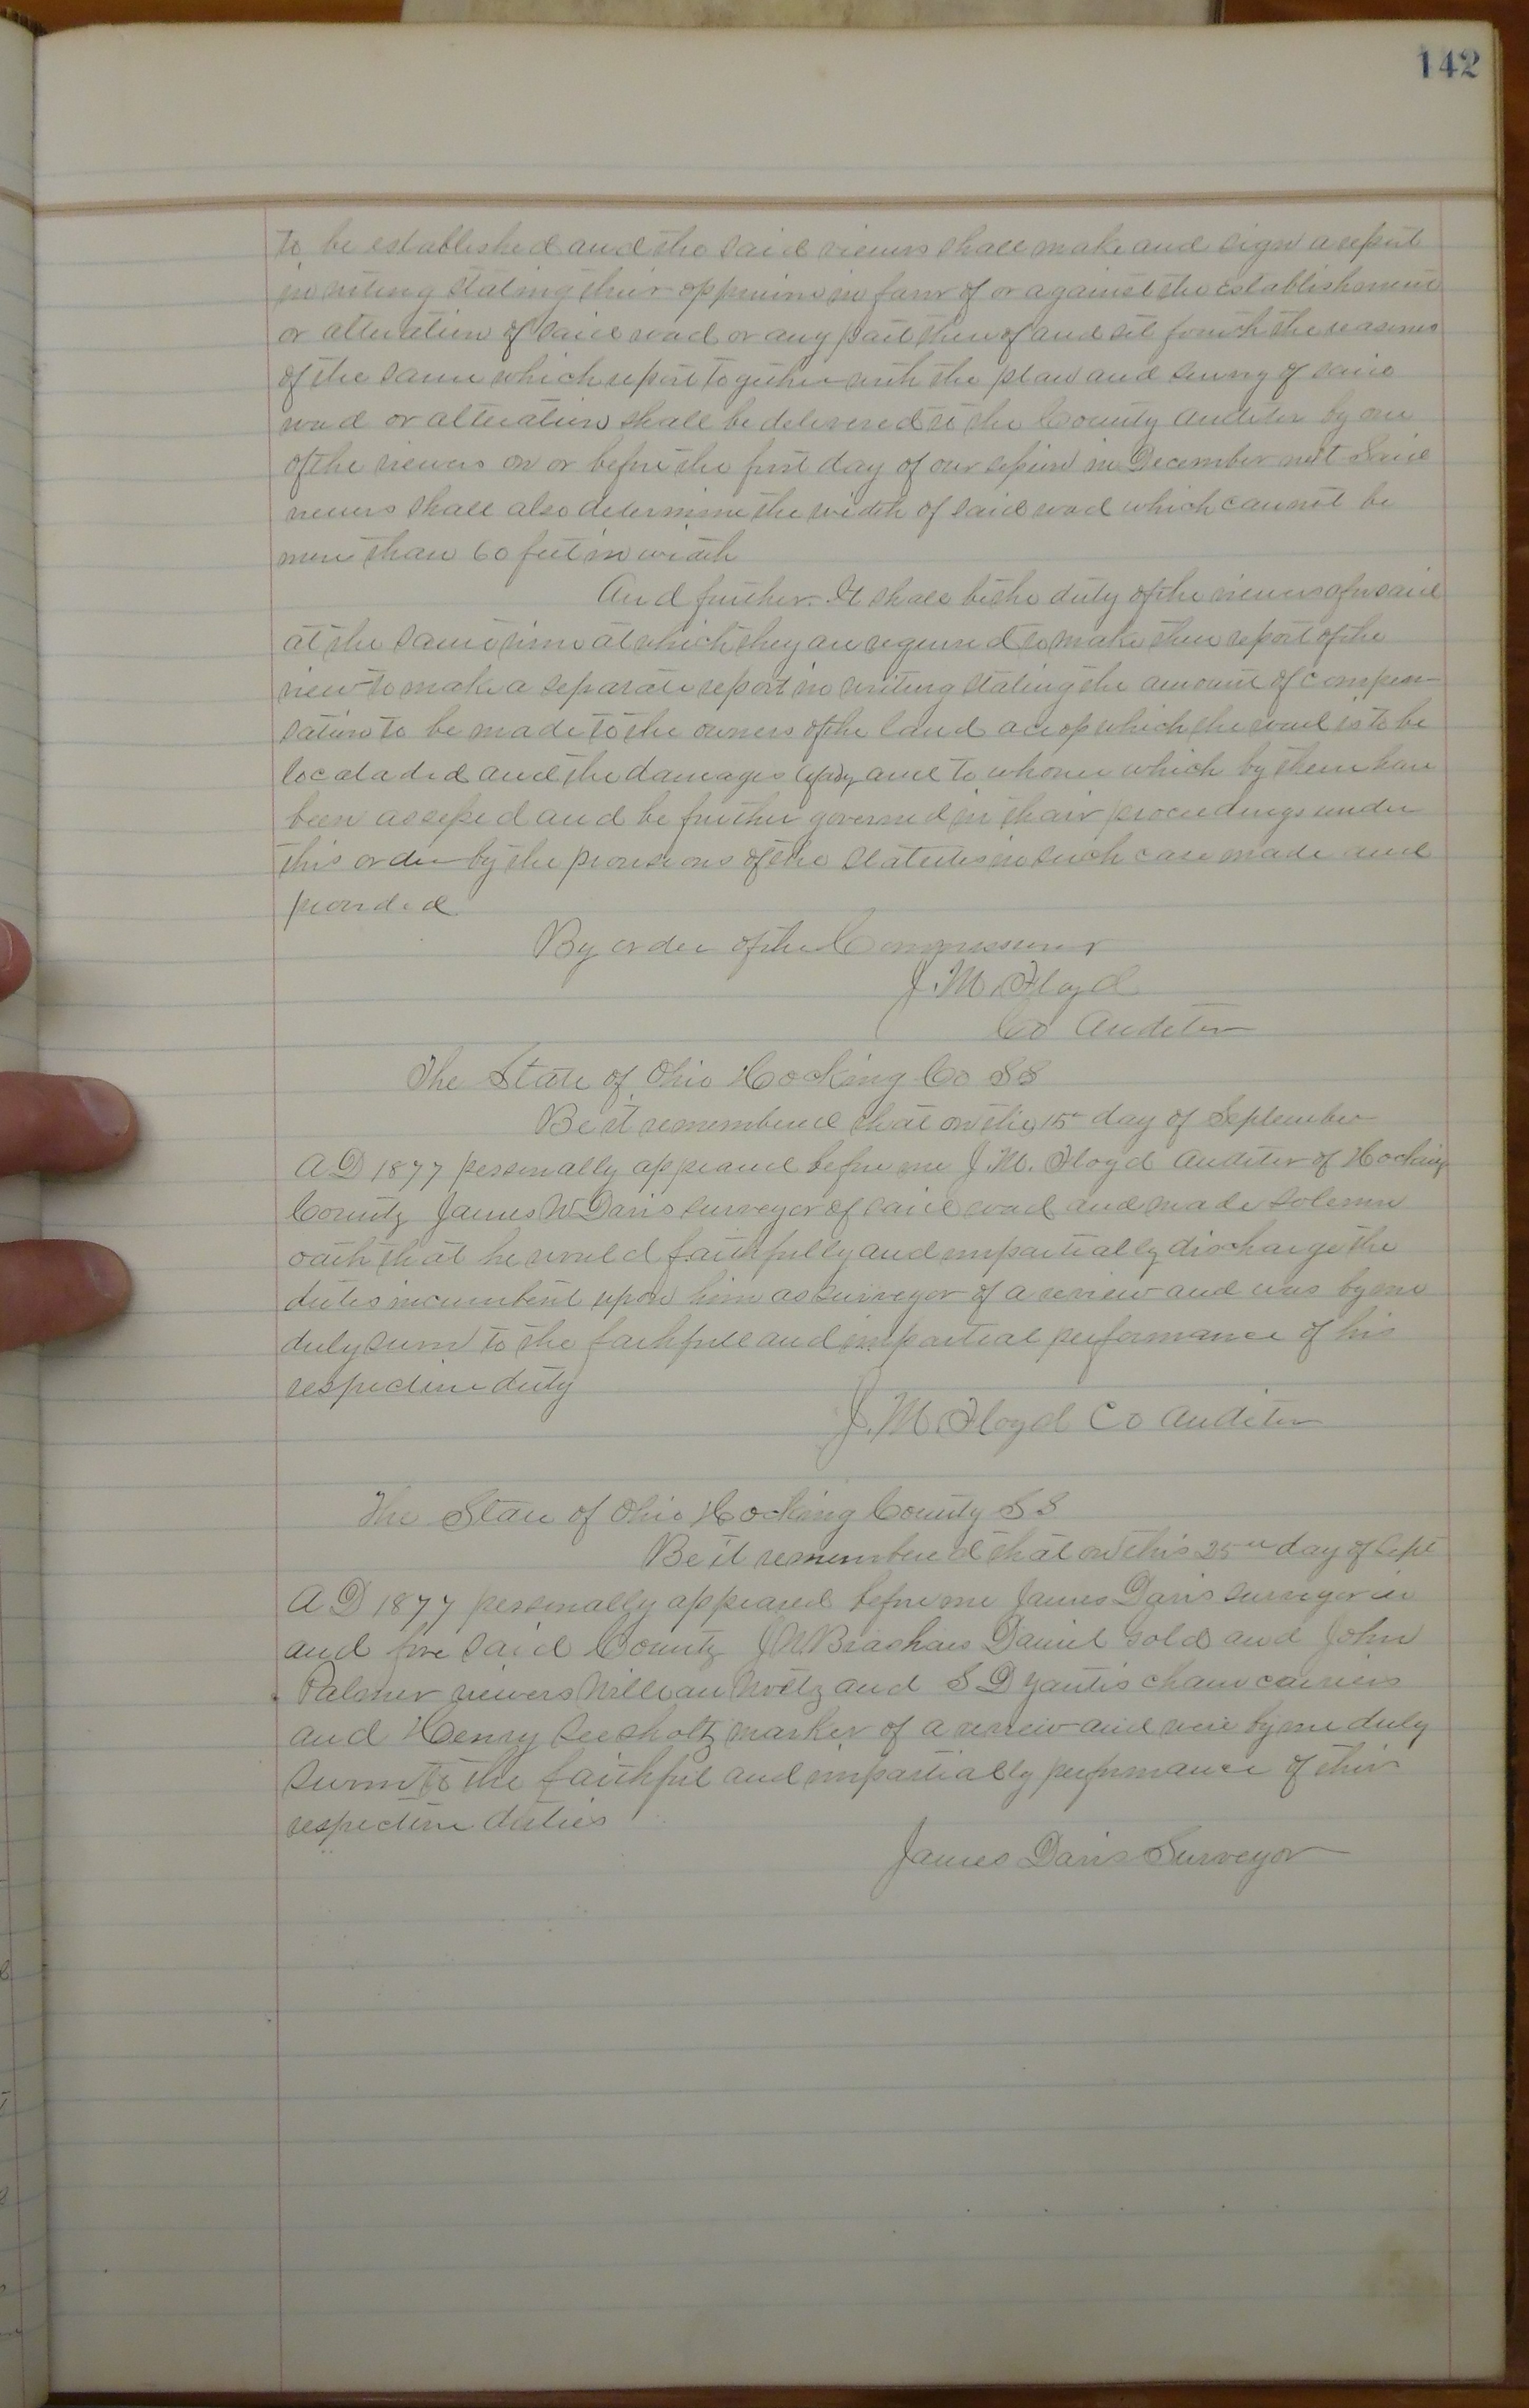 142
to be established and the said viewers shall make and sign a report
in writing stating their oppinion in favor of or against the establishment
or alteration of said road or any part thereof and set fourth the reasons
of the same which report together with the plan and survey of said
road or alteration shall be delivered to the County Auditor by one
of the viewers on or before the first day of our session in December next Said
viewers shall also determine the width of said road which cannot be
more than 60 feet in width
And further. It shall be the duty of the viewers afosaid
at the same time at which they are required to make their report of the
view to make a separate report in writing stating the amount of compen-
sation to be made to the owners of the land across which the road is to be
locataded and the damages if any and to whom which by them have
been assessed and be further governed in thair proceedings under
this order by the provisions of the Statutes in such case made and
provided
By order of the Commissioner
J. M. Floyd
Co Auditor
The State of Ohio Hocking Co SS
Be it remembered that on this 15th day of September
AD 1877 personally appeared before me J. M. Floyd Auditor of Hocking
County James W Davis surveyor of said road and made solemn
oath that he would faithfully and impartially discharge the
duties incumbent upon him as surveyor of a review and was by me
duly sworn to the faithfull and impartial performance of his
respective duty
J. M. Floyd Co Auditor
The State of Ohio Hocking County SS
Be it remembered that on this 25th day of Sept
AD 1877 personally appeared before me James Davis surveyor in
and fore said County Brashars Daniel Gold and John
Palmer viewers William Woltz and S D Yantis chain carriers
and Henry Seesholtz marker of a review and were by me duly
sworn to the faithful and impartially performance of their
respective duties
James Davis Surveyor